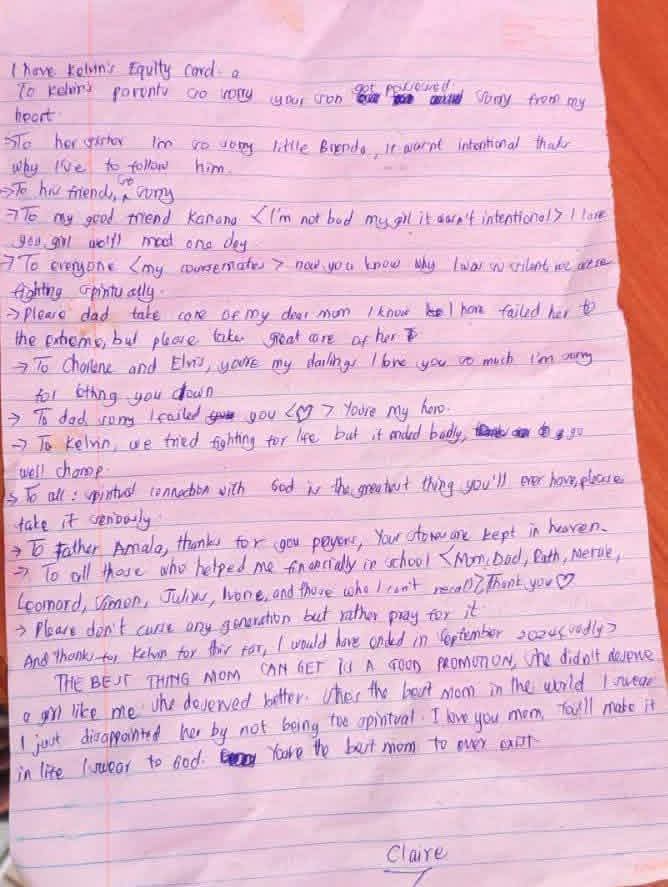 I have Kelvin's Equity card.
To Kelvin's parents so sorry your son got possessed sorry from my
heart.
→To her sister Im so sorry little Brenda, it wasnt intentional thats
why I've to follow him.
→To his friends, so sorry
→To my good friend Kanana <I'm not bad my girl it wasn't intentional> I love
you girl we'll meet one day.
→To everyone <my coursemates> now you know why I was so silent, we were
fighting spiritually.
→Please dad take care of my dear mom I know I have failed her to
the extreme, but please take great care of her
→ To Charlene and Elvis, you're my darlings I love you so much I'm sorry
for letting you down
→ To dad sorry I failed you <♡> You're my hero.
→ To Kelvin, we tried fighting for life but it ended badly, go
well champ.
→ To all: spiritual connection with God is the greatest thing you'll ever have, please
take it seriously.
→ To Father Amala, thanks for you prayers, Your are kept in heaven.
→ To all those who helped me financially in school <Mom, Dad, Ruth, Mercie,
Leornard, Simon, Julius, Ivone, and those who I can't recall> Thank you ♡
→ Please don't curse any generation but rather pray for it.
And thanks to Kelvin for this far, I would have ended in September 2024 <sadly>
THE BEST THING MOM CAN GET IS A GOOD PROMOTION, she didn't deserve
a girl like me. she deserved better. she's the best mom in the world I swear
I just disappointed her by not being too spiritual. I love you mom, You'll make it
in life I swear to God. You're the best mom to ever exist.
Claire